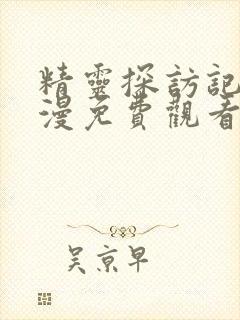 精靈探訪記
漫免費觀看
吳京早